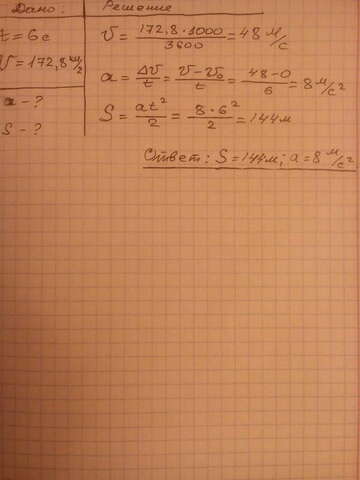 Дано:
t = 6 с
V = 172,8 км/ч
a - ?
S - ?
Решение
V = 172,8 · 1000 / 3600 = 48 м/с
a = ΔV/t = V - V₀/t = 48 - 0/6 = 8 м/с²
S = at²/2 = 8 · 6²/2 = 144 м
Ответ: S = 144 м; a = 8 м/с²